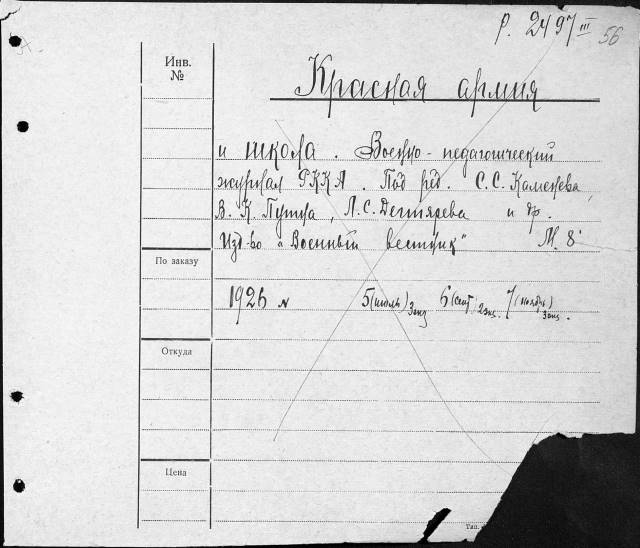 р. 2497 III
56
Инв.
№
Красная армия
и школа. Военно-педагогический
журнал РККА. Под ред. С.С. Каменева,
В. К. Путна, Л.С. Дегтярева и др.
Изд-во "Военный вестник" М. 8°
По заказу
1926 № 5 (июль) 3экз 6 (сент) 2экз. 7 (ноябрь) 3экз.
Откуда
Цена
Тип.